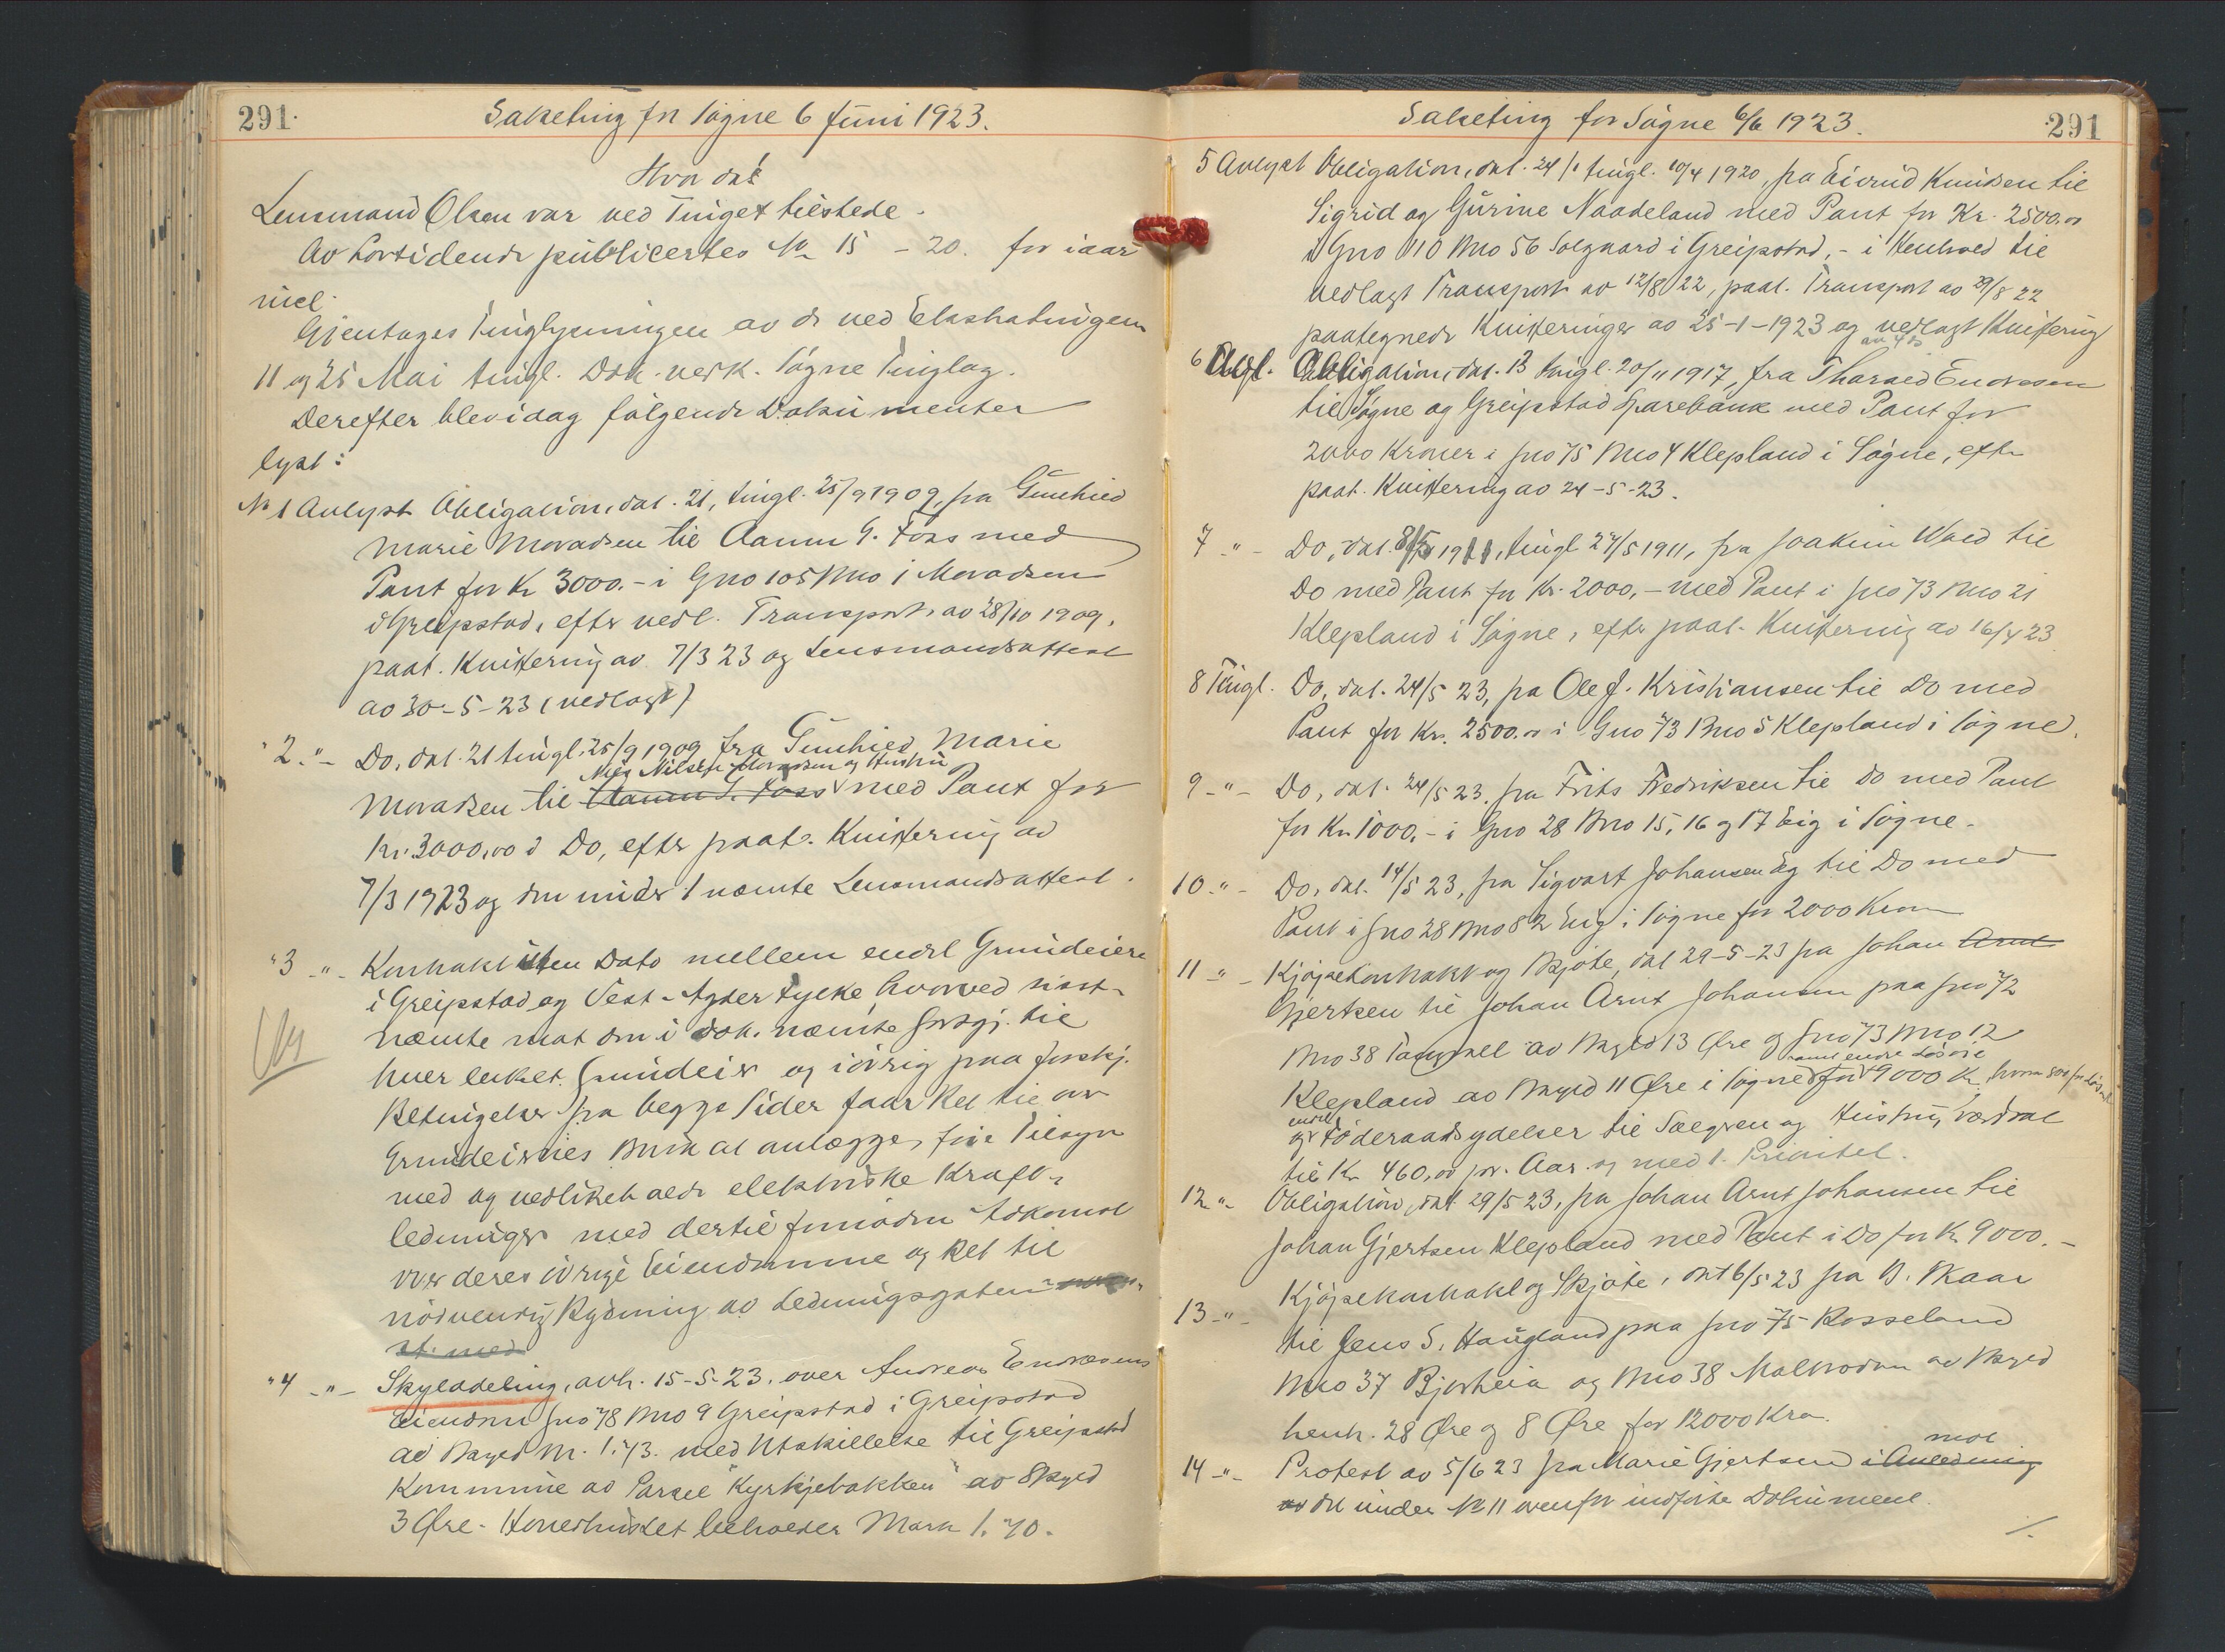 291.
Sakseting for Søgne 6 Juni 1923.
Hvor da:
Lensmand Olsen var ved Tinget tilstede.
Av Lovtidende publicertes No 15 - 20. for iaar
Gjentages Tinglysningen av de ved Ekstratingene
11 og 25 Mai tingl. Dok. vedk. Søgne Tinglag.
Derefter blev idag følgende Dokumenter
lyst:
No 1 Avlyst Obligation, dat. 21, tingl. 25/9 1909, fra Gunhild
Marie Moradsen til Aanun G. Foss med
Pant for Kr 3000.- i Gno 105 Bno 1 Moradsen
i Greipstad, efter vedl. Transport av 28/10 1909,
paat. Kvittering av 7/3 23 og Lensmandsattest
av 30-5-23 (vedlagt)
" 2 " - Do, dat. 21 tingl. 25/9 1909 fra Gunhild Marie
Niels Nilsen Moradsen og Hustru
Moradsen til Aanun G. Foss med Pant for
Kr. 3000,00 i Do, efter paat. Kvittering av
7/3 1923 og den under 1 nævnte Lensmandsattest.
" 3 - " - Kontrakt uten Dato mellem endel Grundeiere
i Greipstad og Vest-Agder Fylke hvorved sidst-
nævnte mot den i Dok. nævnte Godtgj. til
hver enkelt Grundeier og iøvrig paa forskj.
Betingelser fra begge Sider faar Ret til over
Grundeiernes Bruk at anlægge, føre Tilsyn
med og vedlikeholde elektriske Kraft-
ledninger med dertil fornøden Adkomst
over deres øvrige Eiendomme og Ret til
nødvendig Rydning av Ledningsgaten
st. med
" 4 - " - Skylddeling, avh. 15-5-23, over Andreas Endresens
Eiendom Gno 78 Bno 9 Greipstad i Greipstad
av Skyld M. 1.73. med Utskillelse til Greipstad
Kommune av Parcel "Kyrkjebakken" av Skyld
3 Øre. Hovedbruket beholder Mark 1.70.
Sakseting for Søgne 6/6 1923.
291
5 Avlyst Obligation, dat. 24/1 tingl. 10/4 1920, fra Eivind Knudsen til
Sigrid og Gurine Naadeland med Pant for Kr. 2500.00
i Gno 110 Bno 56 Solgaard i Greipstad, - i Henhold til
vedlagt Transport av 12/8 22, paat. Transport av 29/8 22
paategnede Kvitteringer av 25-1-1923 og vedlagt Kvittering
6 Avl. Obligation, dat. 13 tingl. 20/11 1917, fra Tharald Endresen
til Søgne og Greipstad Sparebank med Pant for
2000 Kroner i Gno 75 Bno 4 Klepland i Søgne, efter
paat. Kvittering av 24-5-23.
7 - " - Do, dat. 8/5 1911, tingl 27/5 1911, fra Joakim Wald til
Do med Pant for Kr. 2000,- med Pant i Gno 73 Bno 21
Klepland i Søgne, efter paat. Kvittering av 16/4 23
8 Tingl. Do, dat. 24/5 23, fra Ole J. Kristiansen til Do med
Pant for Kr. 2500.00 i Gno 73 Bno 5 Klepland i Søgne.
9 - " - Do, dat. 24/5 23. fra Frits Fredriksen til Do med Pant
for Kr. 1000,- i Gno 28 Bno 15, 16 og 17 Eig i Søgne.
10 - " - Do, dat. 14/5 23, fra Sigvart Johansen Eg til Do med
Pant i Gno 28 Bno 82 Eig i Søgne for 2000 Kroner
11 " - Kjøpekontrakt og Skjøte, dat 29-5-23 fra Johan Arnt
Gjertsen til Johan Arnt Johansen paa Gno 72
Bno 38 av Skyld 13 Øre og Gno 73 Bno 12
samt endre Løsøre
Klepland av Skyld 11 Øre i Søgne for 9000 Kr, hvorav 500 for Løsøre
endel
og Føderaadsydelser til Sælgeren og Hustru, værdsat
til Kr 460,00 pr. Aar og med 1. Prioritet.
12 " - Obligation, dat 29/5 23, fra Johan Arnt Johansen til
Johan Gjertsen Klepland med Pant i Do for Kr. 9000.-
13 - " - Kjøpekontrakt og Skjøte, dat 6/5 23 fra B. Skaar
til Jens S. Haugland paa Gno 75 Rosseland
Bno 37 Bjorheia og Bno 38 av Skyld
henh. 28 Øre og 8 Øre for 12000 Kr.
mot
14 - " - Protest av 5/6 23 fra Marie Gjertsen i Anledning
av det under No 11 ovenfor indførte Dokument.